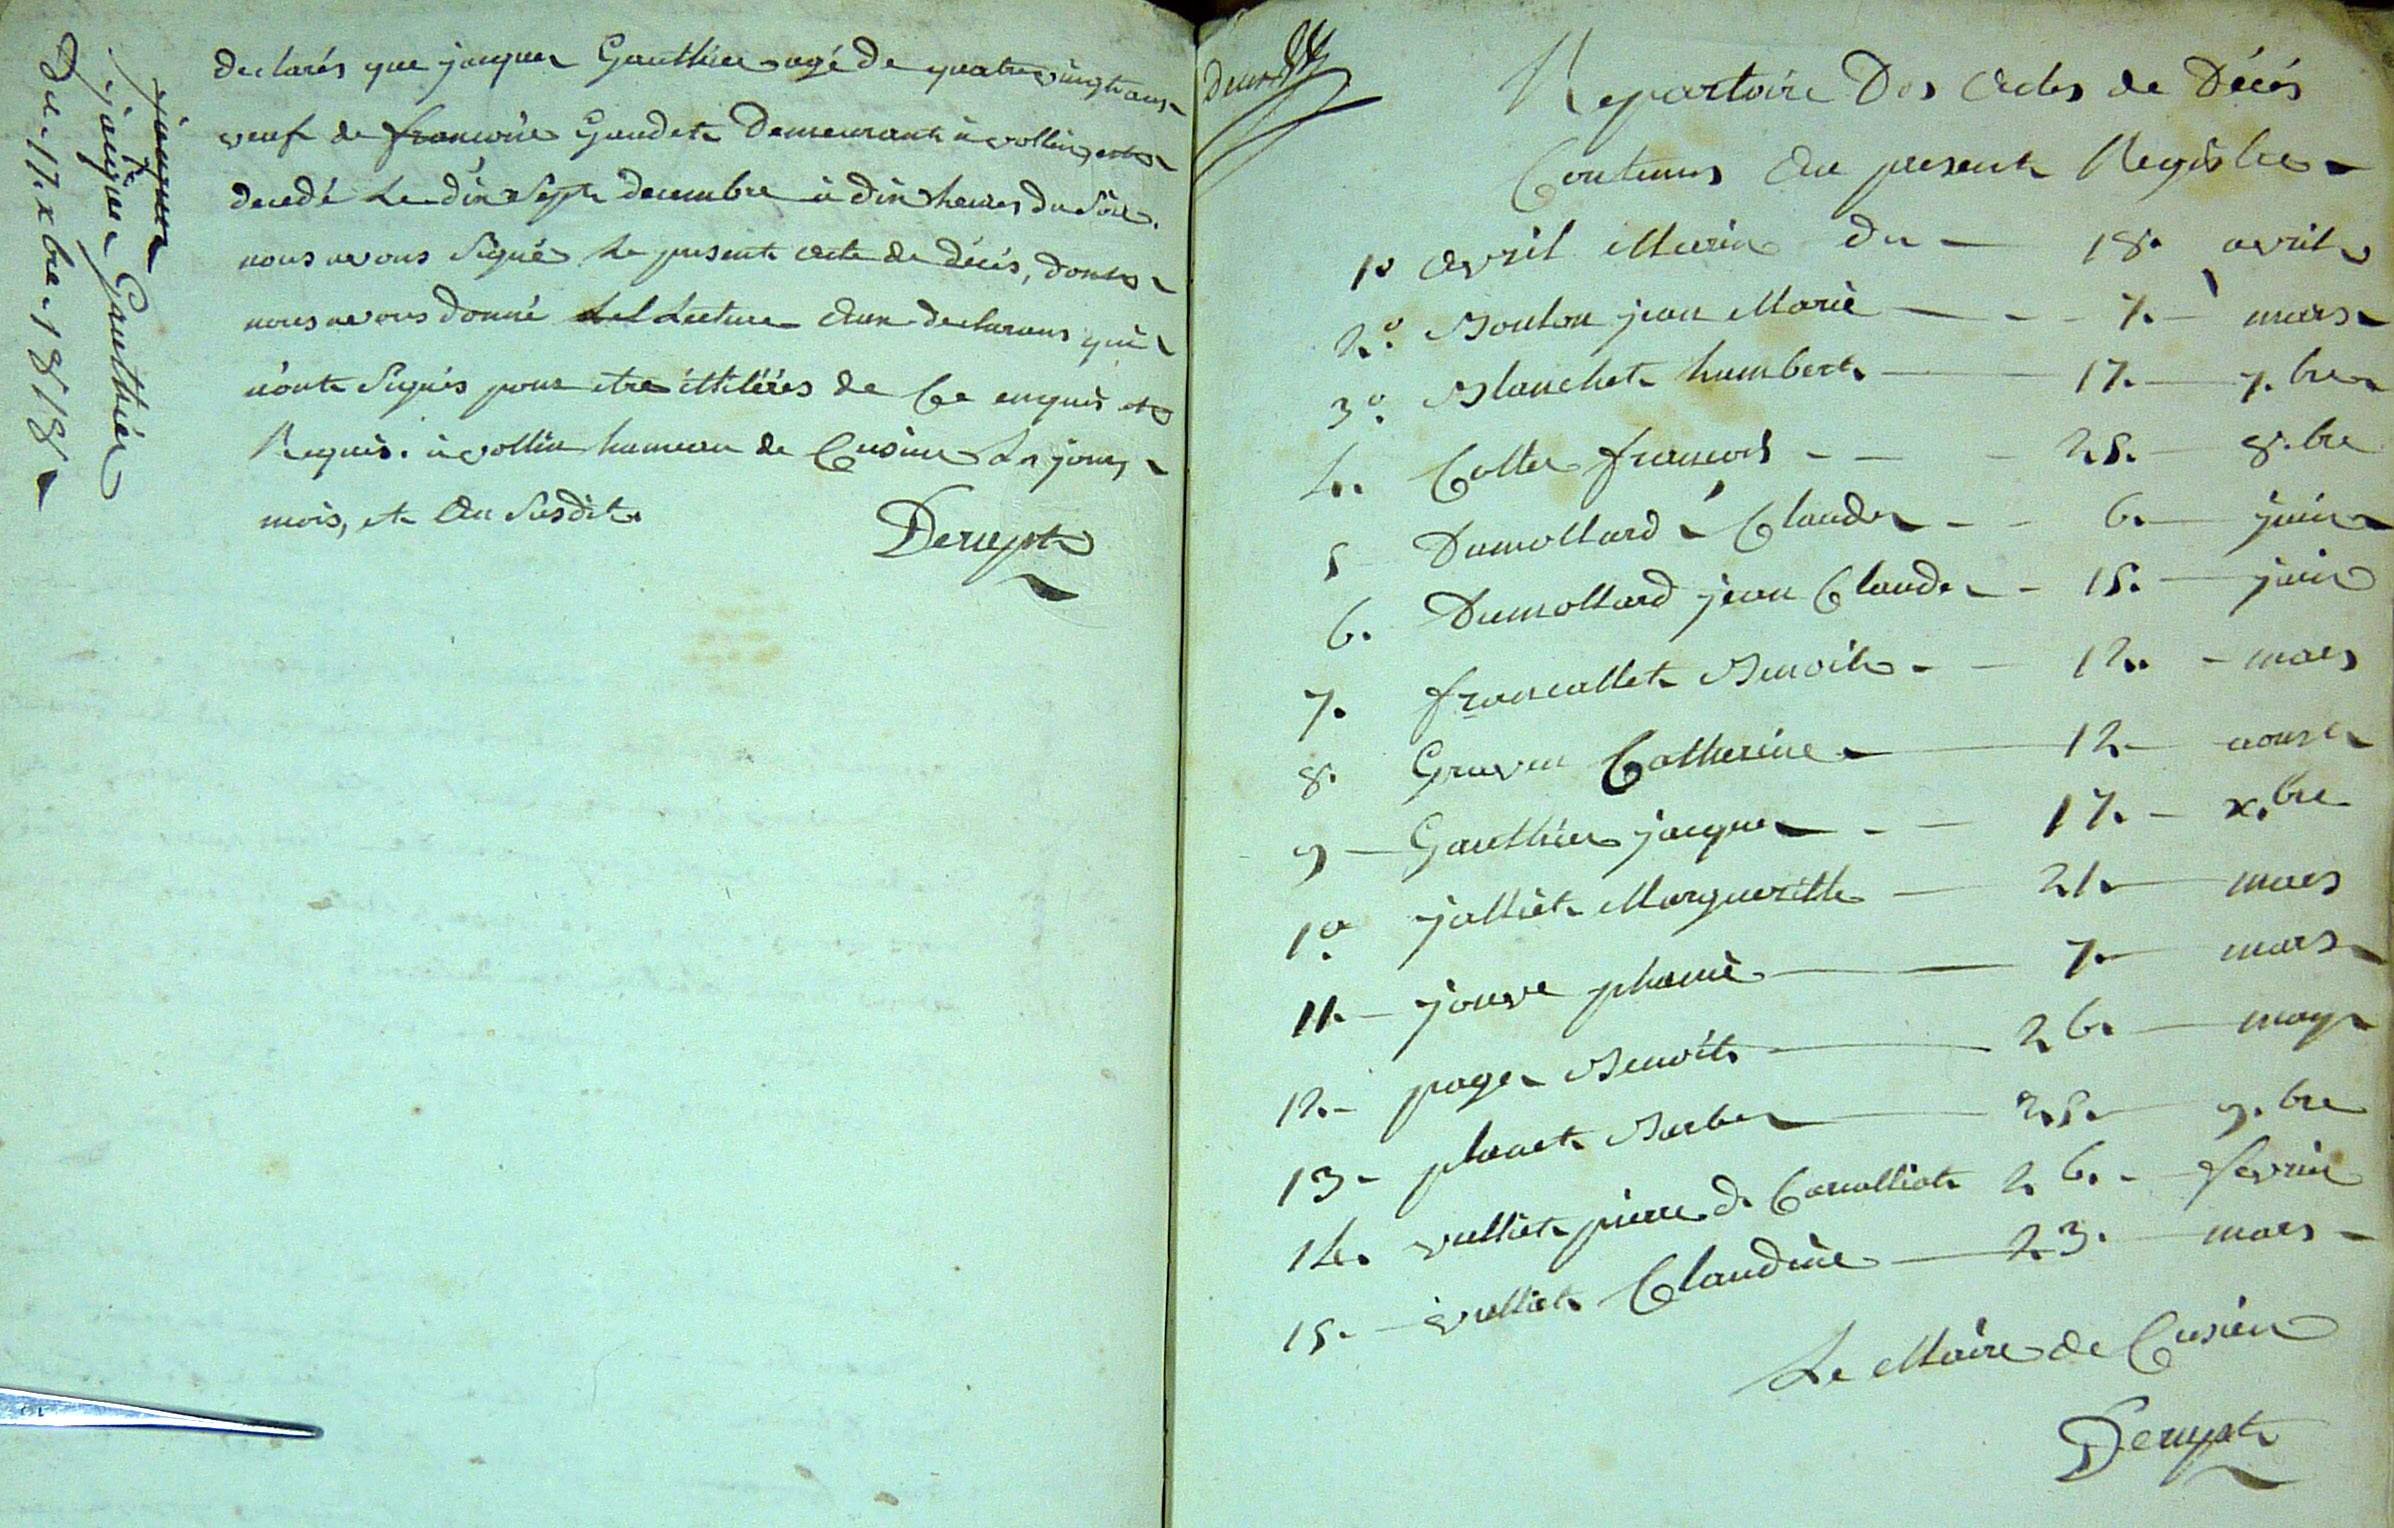 jacques
jaques Gauthier
Du. 17. xbre. 1818
declarés que jacques Gauthier agé de quatre vingt ans
veuf de francoise Gaudet Demeurant à vollin, est
decedé Le dix Sept decembre à dix heures du Soir.
nous avons Signé Le present acte de décés, dont
nous avons donné Lecture aux declarans qui
n'ont Signés pour etre ittiléres de Ce enquis et
Requis. à vollin hameau de Cusieu Les jour,
mois, et an Susdit.
Derupt
Repertoire Des actes de Décés
Contenus au present Registre
1º avril Marie du 18. avril
2º. Bouton jean Marie 7. mars
3º. Blanchet humbert 17. 7.bre
4. Collet francois 25. 8.bre
5 Dumollard Claude 6. juin
6. Dumollard jean Claude 15. juin
7. francallet Benoit 12. mars
8. Catherine 12. aoust
9 Gauthier jacques 17. x.bre
10. jalliet Margueritte 21. mars
11. jouve phanie 7. mars
12. page Benoit 26. may
13 planet Barbe 25. 9.bre
14. vulliet pierre d. 26. fevrier
15. vulliet Claudine 23. mars
Le Maire de Cusieu
Derupt